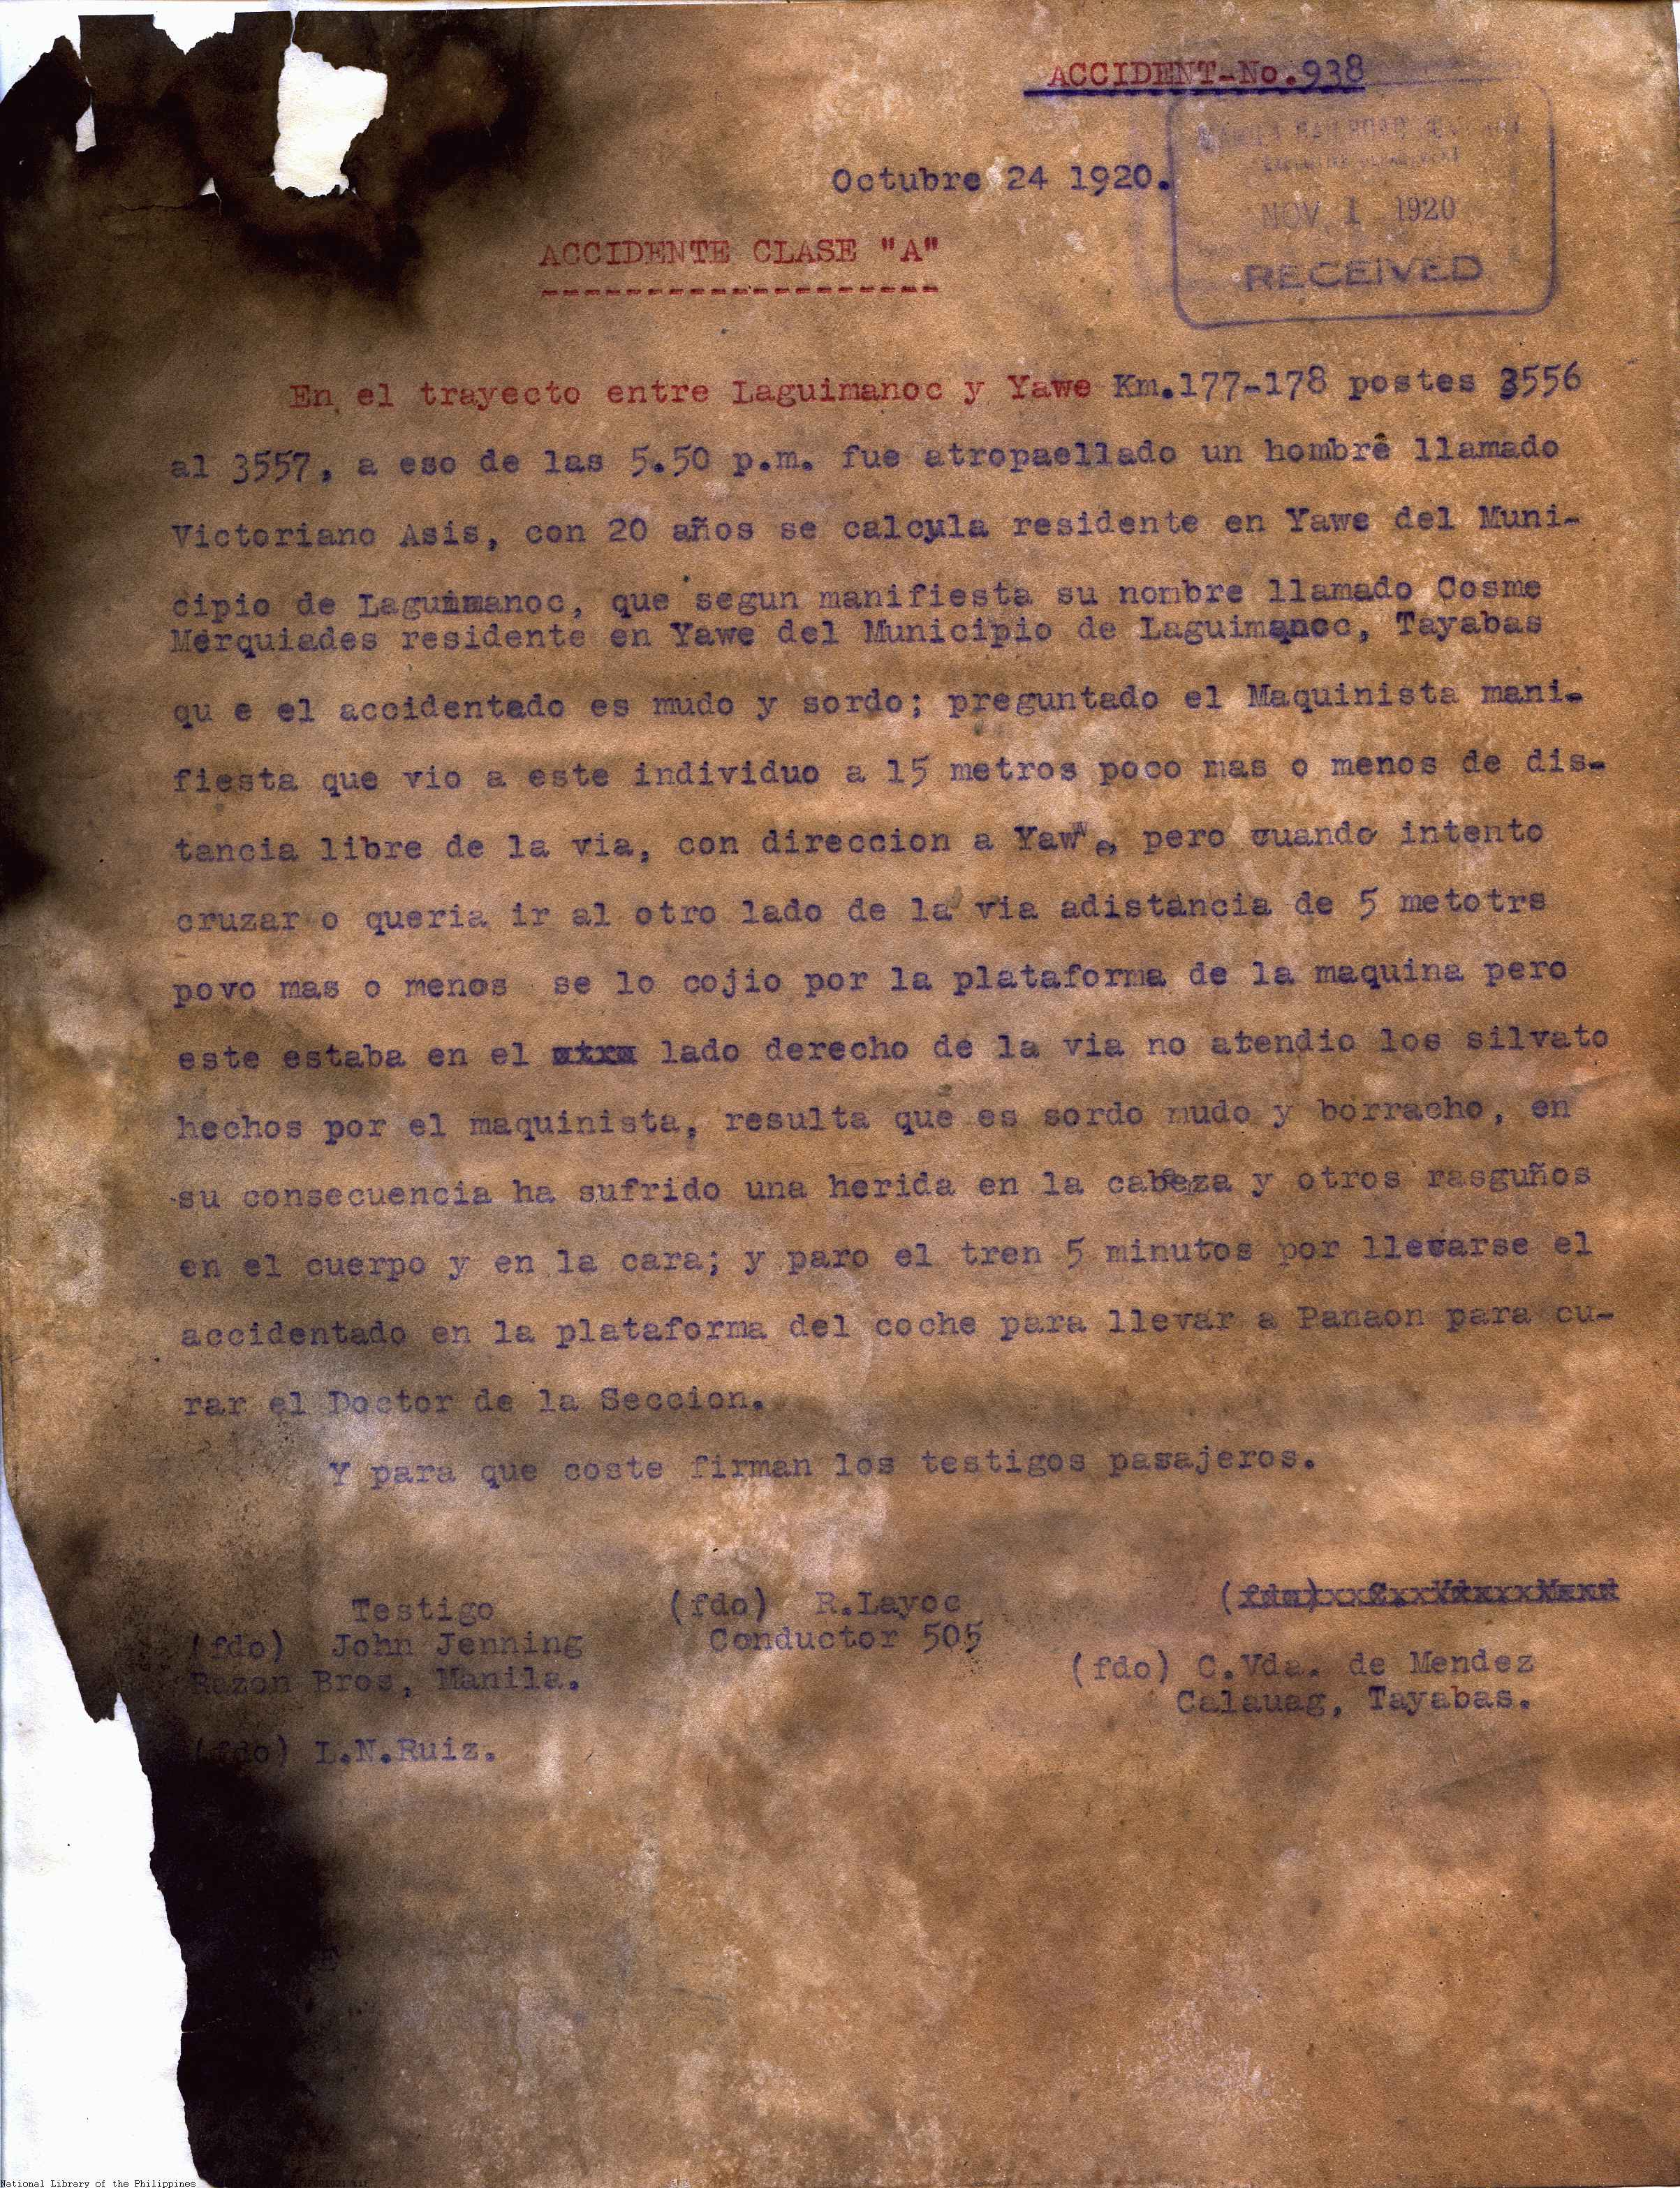 ACCIDENT-No.938
MANILA RAILROAD COMPANY
EXECUTIVE DEPARTMENT
NOV. 1 1920
RECEIVED
Octubre 24 1920.
ACCIDENTE CLASE "A"
-------------------
En el trayecto entre Laguimanoc y Yawe Km.177-178 postes 3556
al 3557, a eso de las 5.50 p.m. fue atropaellado un hombre llamado
Victoriano Asis, con 20 años se calcula residente en Yawe del Muni-
cipio de Laguimanoc, que segun manifiesta su nombre llamado Cosme
Merquiades residente en Yawe del Municipio de Laguimanoc, Tayabas
qu e el accidentado es mudo y sordo; preguntado el Maquinista mani-
fiesta que vio a este individuo a 15 metros poco mas o menos de dis-
tancia libre de la via, con direccion a Yawe, pero cuando intento
cruzar o queria ir al otro lado de la via adistancia de 5 metotrs
povo mas o menos se lo cojio por la plataforma de la maquina pero
este estaba en el lado derecho de la via no atendio los silvato
hechos por el maquinista, resulta que es sordo mudo y borracho, en
su consecuencia ha sufrido una herida en la cabeza y otros rasguños
en el cuerpo y en la cara; y paro el tren 5 minutos por llevarse el
accidentado en la plataforma del coche para llevar a Panaon para cu-
rar el Doctor de la Seccion.
Y para que coste firman los testigos pasajeros.
Testigo
(fdo) John Jenning
Razon Bros, Manila.
(fdo) R.Layoc
Conductor 505
(fdo) C.Vda. de Mendez
Calauag, Tayabas.
(fdo) L.N.Ruiz.
National Library of the Philippines